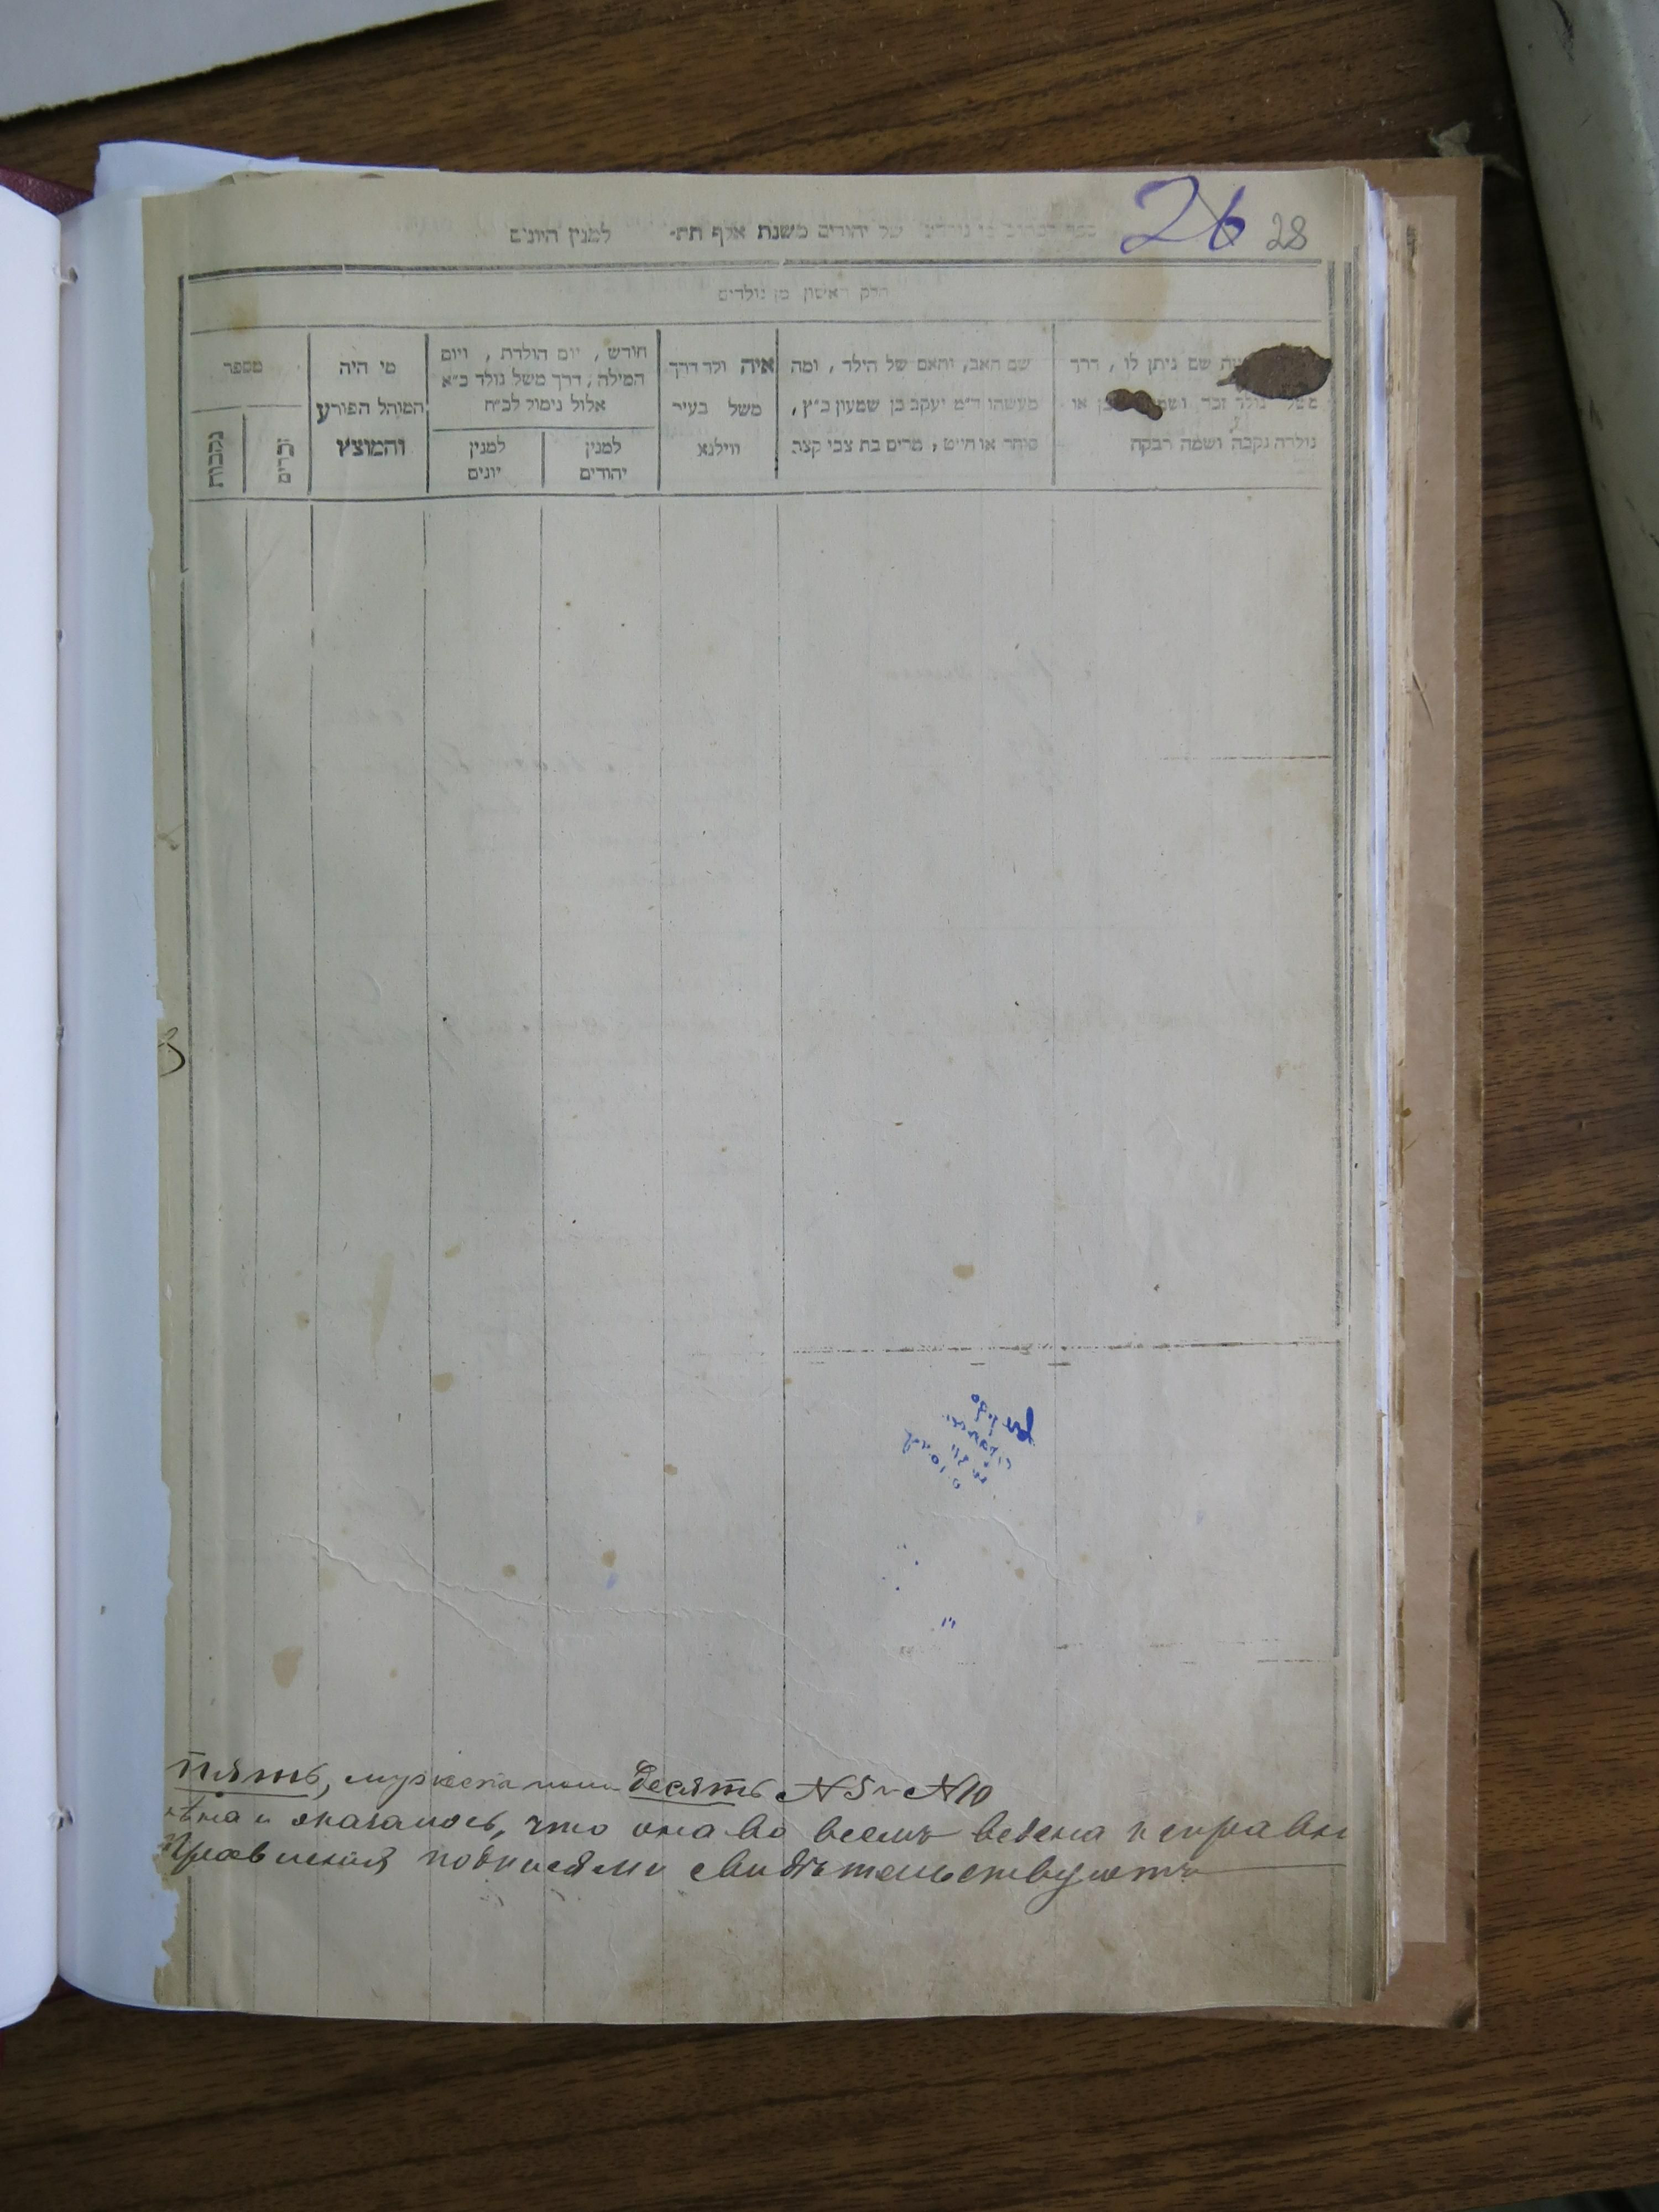 26 28
של יהודים משנת אלף תת- למנין היונים
חלק ראשון מן נולדים
שם ניתן לו, דרך
משל נולד זכר ושמו או
נולדה נקבה ושמה רבקה
שם האב, והאם של הילד, ומה
מעשהו ד״מ יעקב בן שמעון כ״ץ,
סוחר או חייט, מרים בת צבי קצב
איה ולד דרך
משל בעיר
ווילנא
חודש, יום הולדת, ויום
המילה, דרך משל נולד כ״א
אלול נימול לכ״ח
למנין
יהודים
למנין
יונים
מי היה
המוהל הפורע
והמוצץ
מספר
זכרים
נקבות
Пять, мужеска пола десять №5 и №10
и оказалось, что она во всемъ ведена исправн
Правления подписями свидѣтельствуетъ